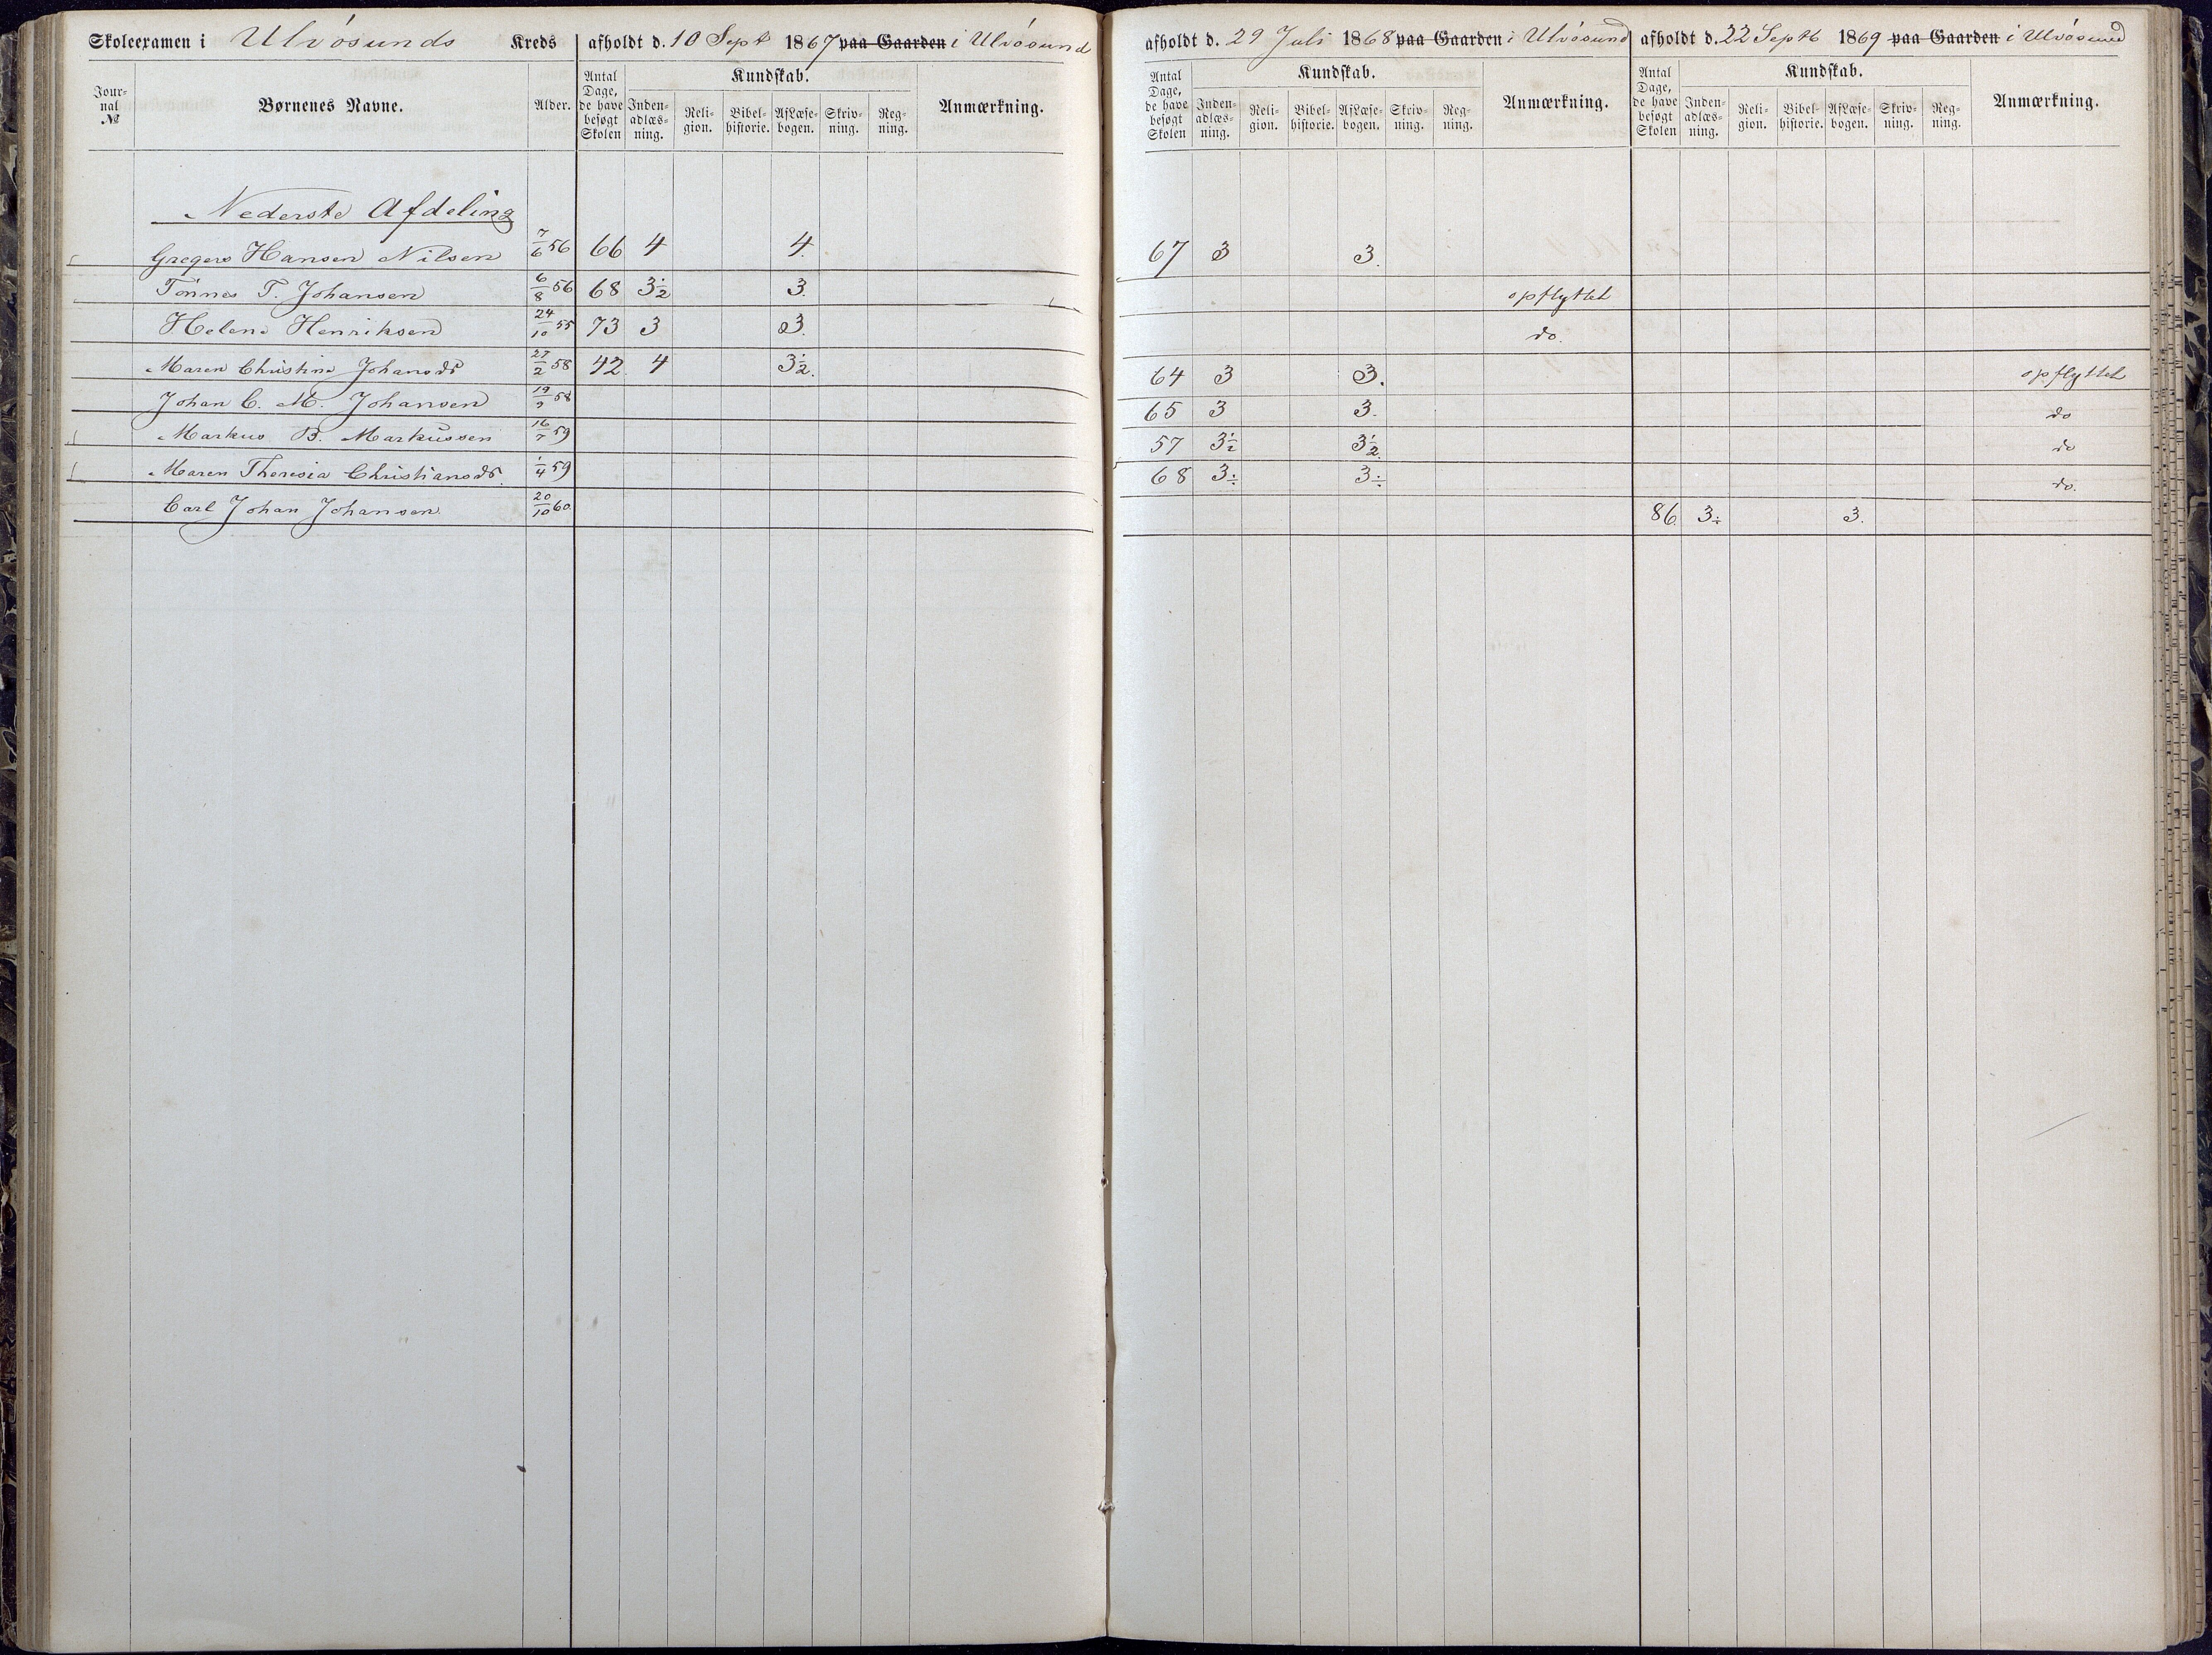 Skoleexamen i Ulvösunds Kreds afholdt d. 10 Sept 1867 paa Gaarden i Ulvösund
Jour-nal № Børnenes Navne. Alder. Antal Dage, de have besøgt Skolen Kundskab. Anmærkning.
Inden-adlæs-ning. Reli-gion. Bibel-historie. Af Læse-bogen. Skriv-ning. Reg-ning.
Nederste Afdeling
Gregers Hansen Nilsen 7/6 56 66 4 4.
Tönnes T. Johansen 6/8 56 68 3½ 3.
Helene Henriksen 24/10 55 73 3 3.
Maren Christine Johansdr 27/2 58 42 4 3½.
Johan C. M. Johansen 19/2 58
Markus B. Markussen 16/7 59
Maren Theresia Christiansdr. 1/4 59
Carl Johan Johansen 20/10 60
afholdt d. 29 Juli 1868 paa Gaarden i Ulvösund
Antal Dage, de have besøgt Skolen Kundskab. Anmærkning.
Inden-adlæs-ning. Reli-gion. Bibel-historie. Af Læse-bogen. Skriv-ning. Reg-ning.
67 3 3.
opflyttet
do.
64 3 3.
65 3 3.
57 3½ 3½.
68 3÷ 3÷
afholdt d. 22 Septb 1869 paa Gaarden i Ulvösund
Antal Dage, de have besøgt Skolen Kundskab. Anmærkning.
Inden-adlæs-ning. Reli-gion. Bibel-historie. Af Læse-bogen. Skriv-ning. Reg-ning.
opflyttet
do
do
do.
86. 3÷ 3.